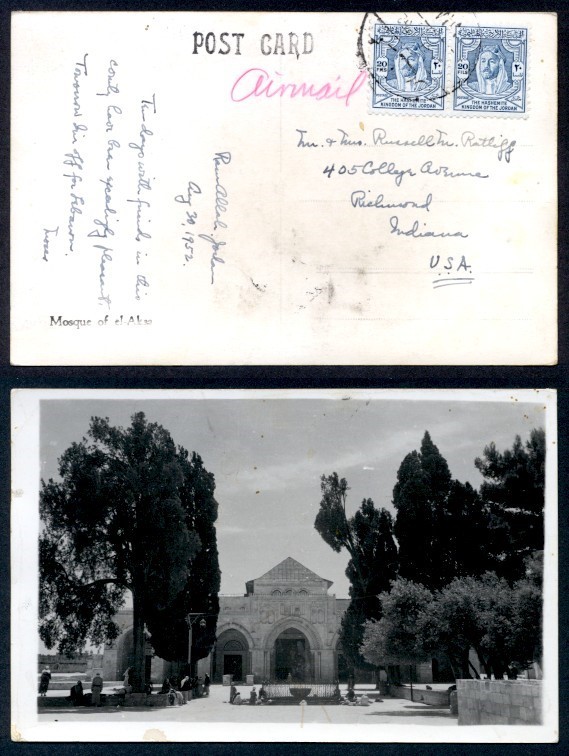 POST CARD
Airmail
20
FILS
٢٠
THE HASHEMITE
KINGDOM OF THE JORDAN
20
FILS
٢٠
THE HASHEMITE
KINGDOM OF THE JORDAN
Mr. & Mrs. Russell M. Ratliff
405 College Avenue
Richmond
Indiana
U.S.A.
RamAllah, Jordan
Aug 30, 1952.
days with friends in this
country have been exceedingly pleasant.
Tomorrow I'm off for Lebanon.
Mosque of el-Aksa